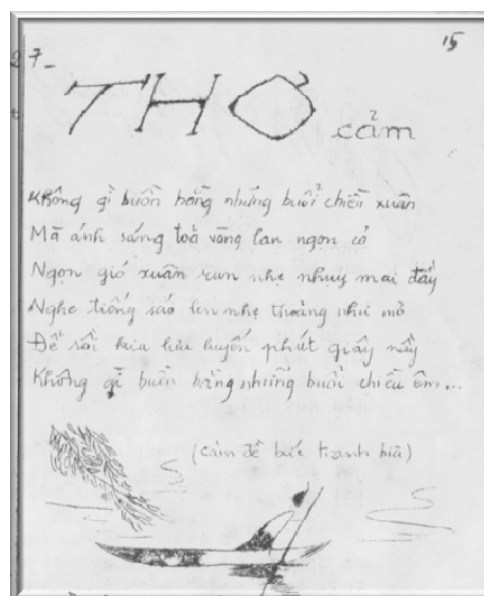 15
27-
THƠ cảm
Không gì buồn bằng những buổi chiều xuân
Mà ánh sáng toả vàng lan ngọn cỏ
Ngọn gió xuân run nhẹ nhuỵ mai đầy
Nghe tiếng sáo lên nhẹ thoảng như mơ
Để rồi kia lưu luyến phút giây nầy
Không gì buồn bằng những buổi chiều êm...
(cảm đề bức tranh bìa)